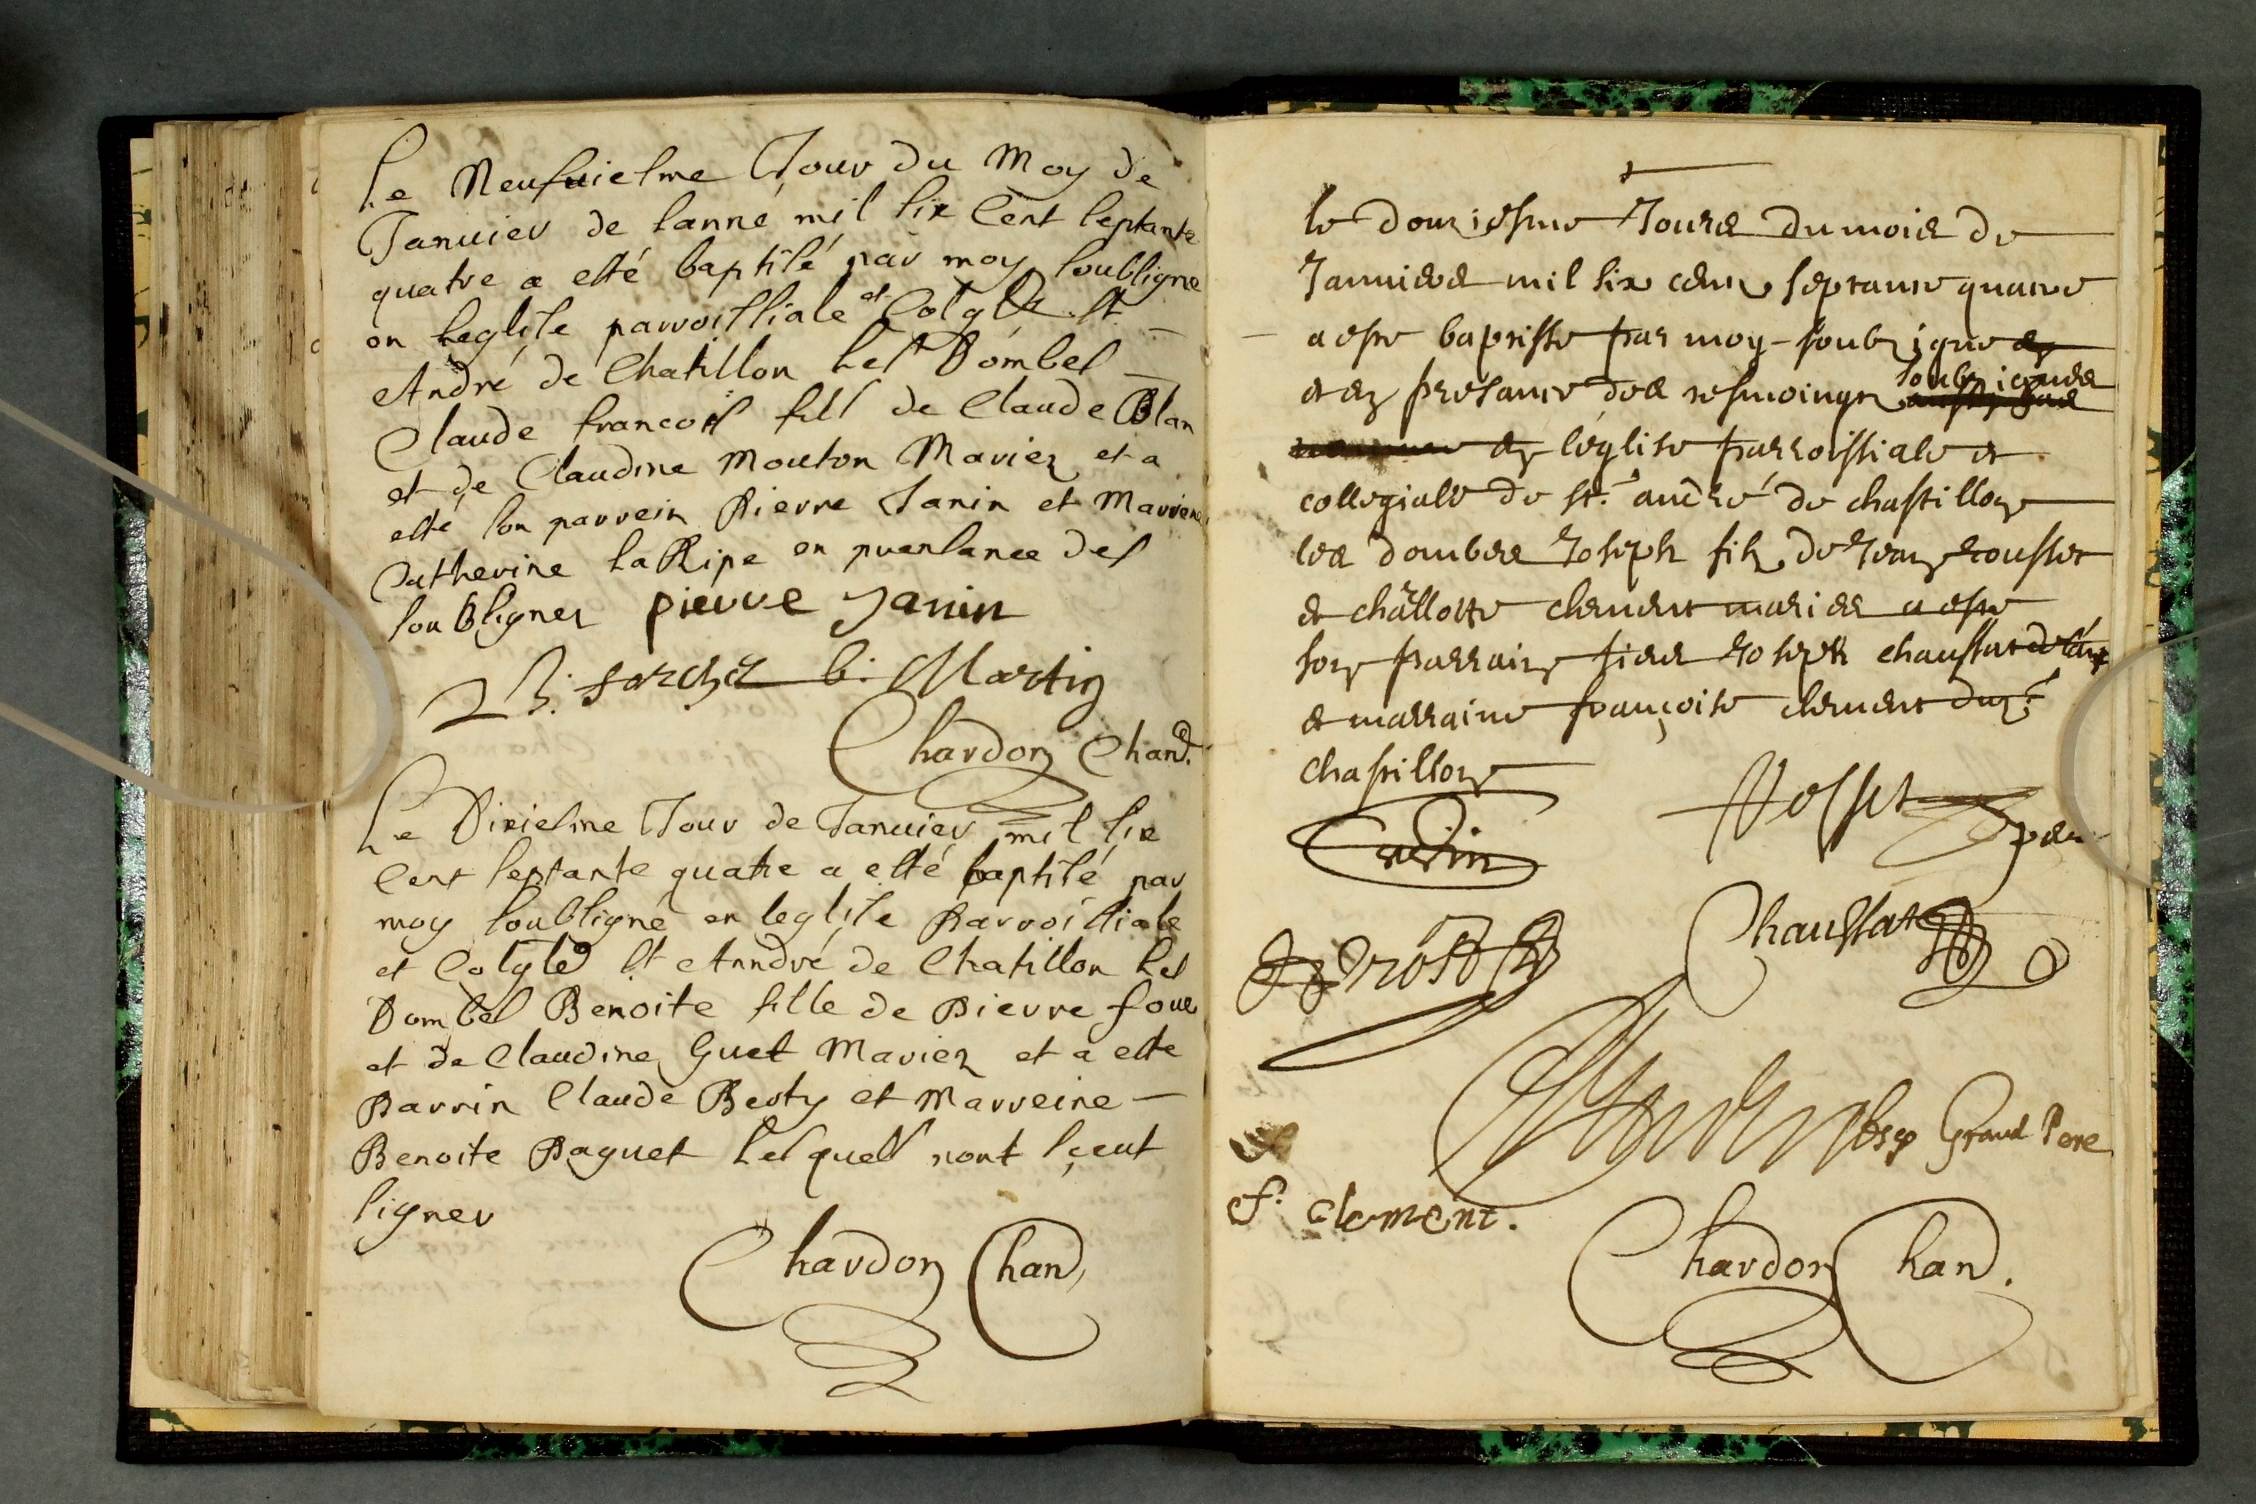 Le Neufuiesme Jour du Moy de
Januier de lanné mil six Cent septante
quatre a esté baptisé par moy soubsigne
en leglise parroissiale et Colgle St
André de Chatillon les Dombes
Claude francois fils de Claude Blan
et de Claudine Mouton Mariez et a
esté son parrein Pierre Janin et Marrene
Catherine la Ripe en presance des
soubsignez pierre Janin
b. Martin
Chardon Chan.
Le Dixiesme Jour de Januier mil six
Cent septante quatre a esté baptisé par
moy soubsigné en leglise Parroissiale
et Colgle St Anndré de Chatillon les
Dombes Benoite fille de Pierre foue
et de Claudine Guet Mariez et a esté
Parrin Claude Berty et Marreine
Benoite Paquet lesquels nont sçeut
signer
Chardon Chan.
le douziesme Jours du mois de
Januiers mil six cents septante quatre
a este baptisse par moy soubzigne
et en presance des tesmoingz soubzignes
en leglise parroissiale et
collegialle de st. andré de chastillon
les dombes Joseph filz de Jean cousset
et charllotte clement maries a este
son parrain sieur Joseph chaussat
et marraine françoise clement dud.
chastillon
Chaussat
Grand Pere
f. clement.
Chardon Chan.